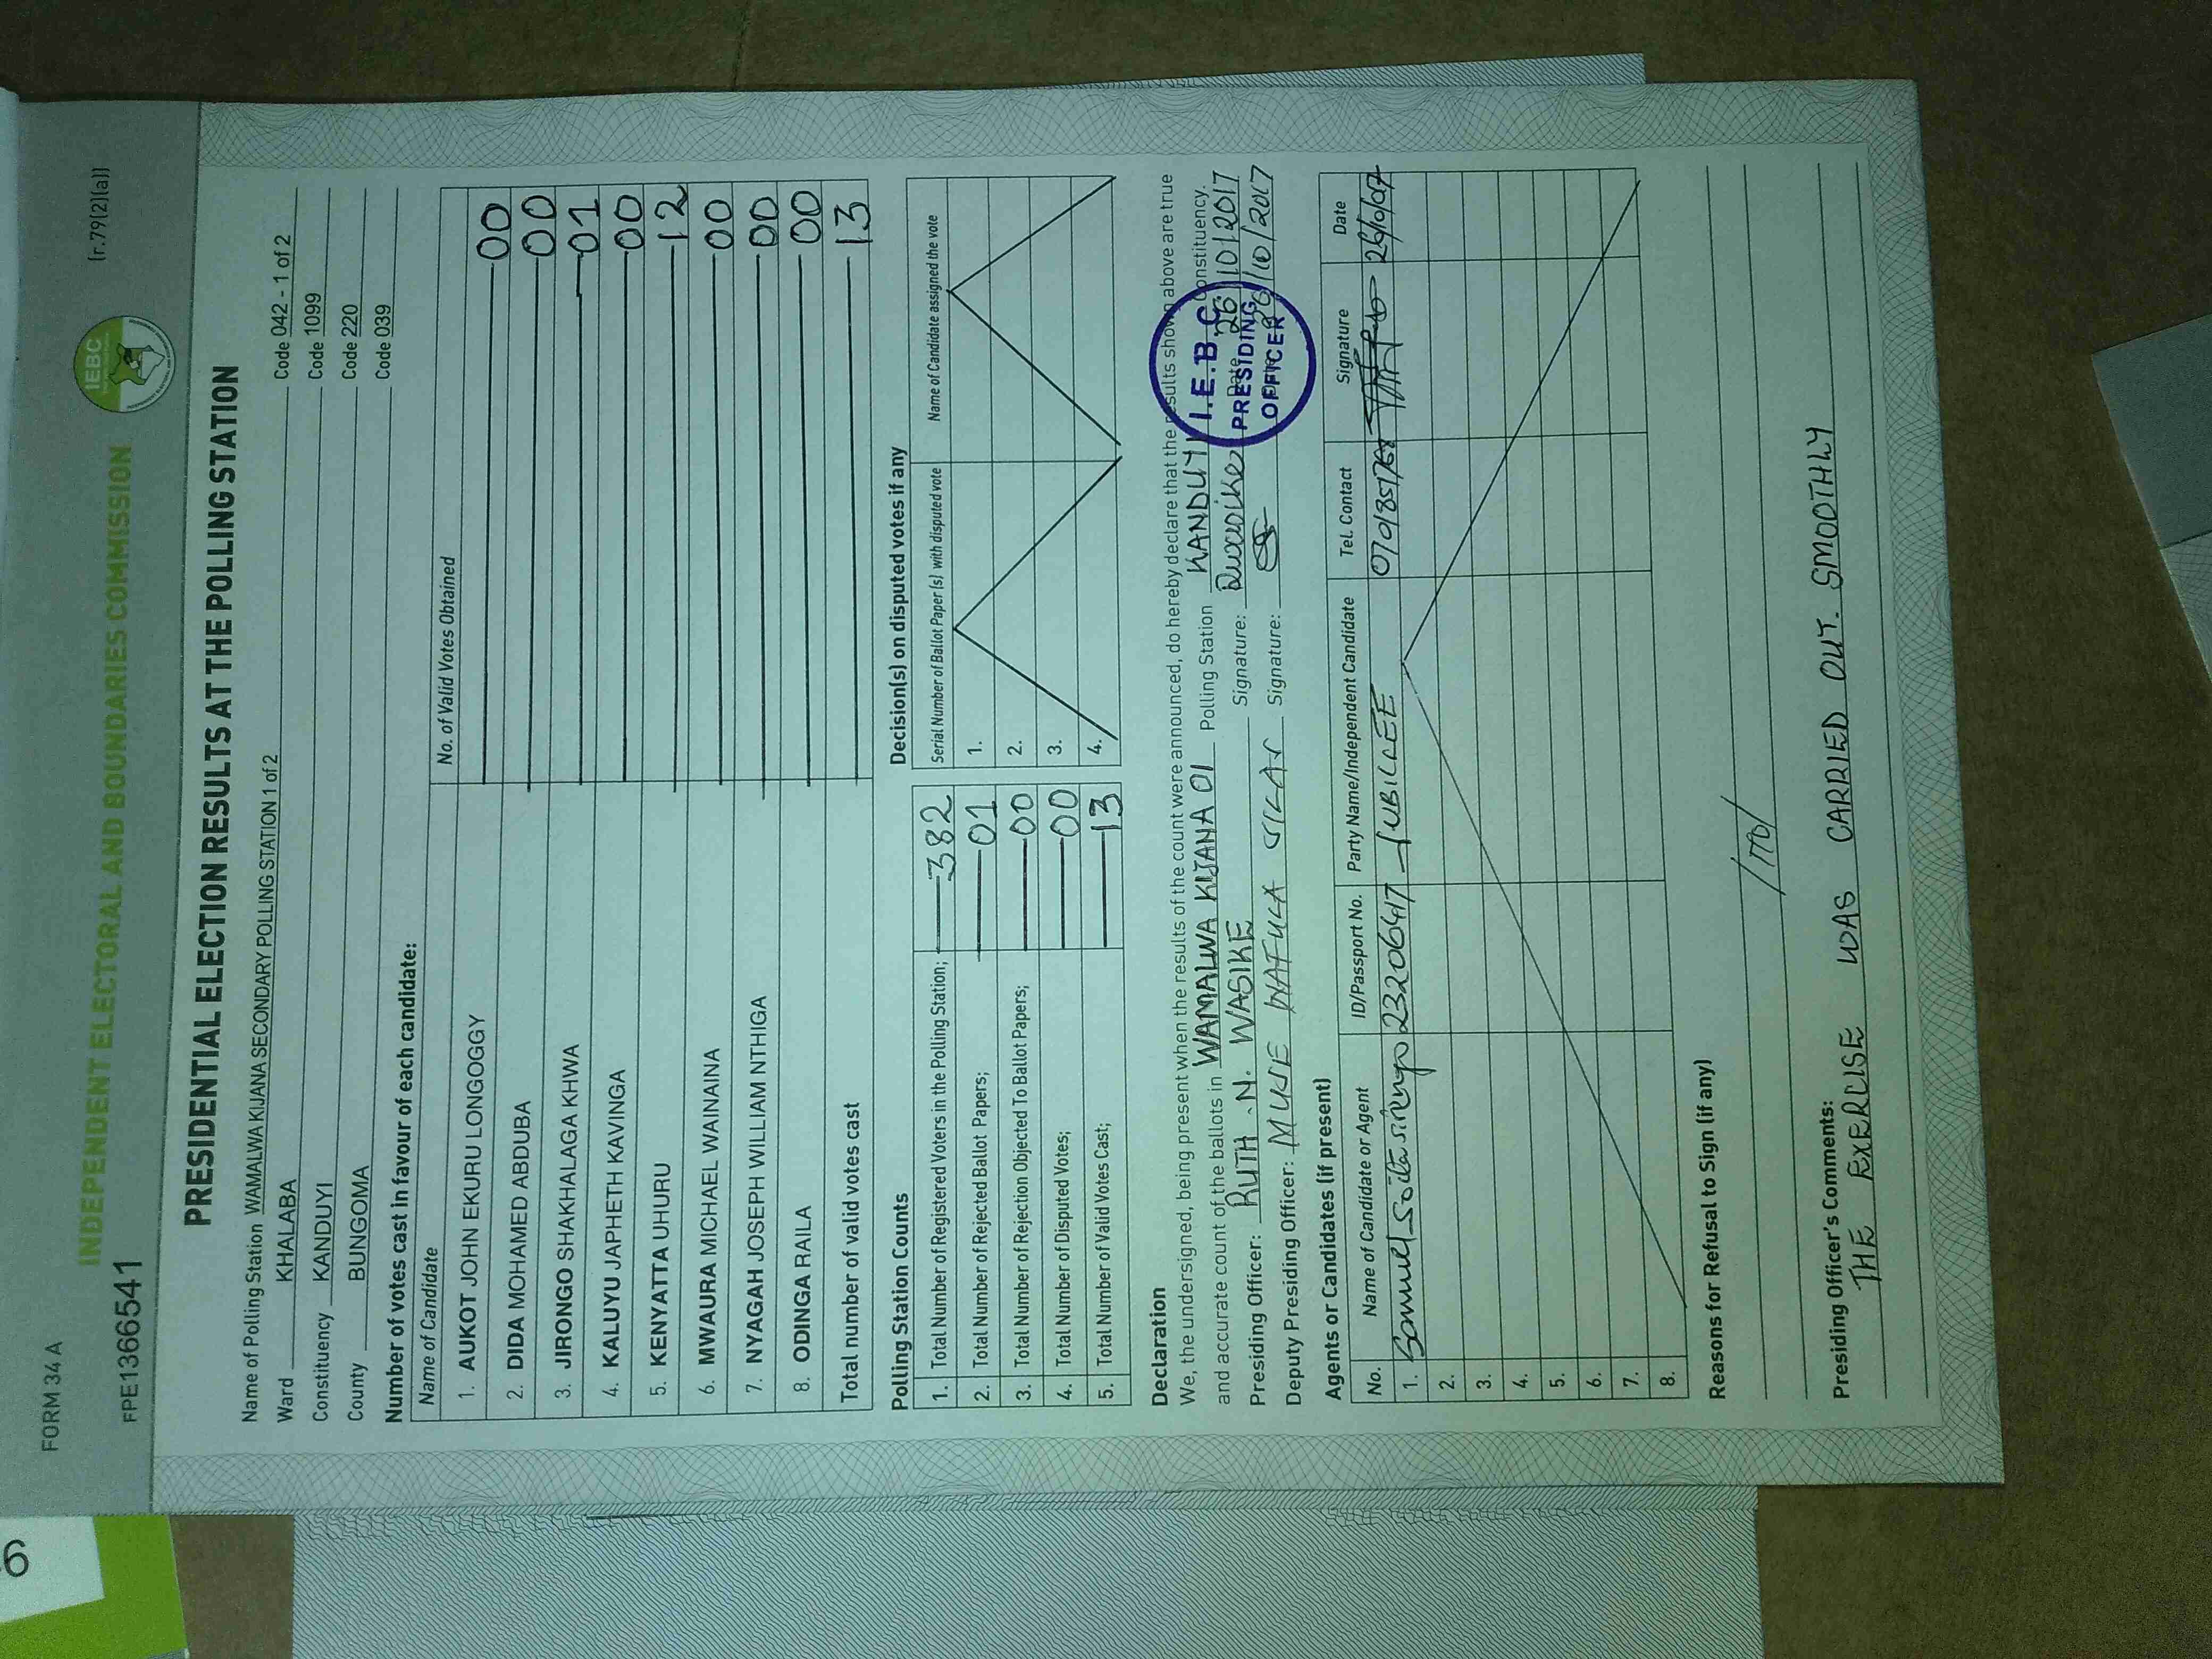 FORM 34 A
(r.79(2)(a))
INDEPENDENT ELECTORAL AND BOUNDARIES COMMISSION
IEBC
FPE1366541
PRESIDENTIAL ELECTION RESULTS AT THE POLLING STATION
Name of Polling Station WAMALWA KIJANA SECONDARY POLLING STATION 1 of 2 Code 042 - 1 of 2
Ward KHALABA Code 1099
Constituency KANDUYI Code 220
County BUNGOMA Code 039
Number of votes cast in favour of each candidate:
Name of Candidate No. of Valid Votes Obtained
1. AUKOT JOHN EKURU LONGOGGY 00
2. DIDA MOHAMED ABDUBA 00
3. JIRONGO SHAKHALAGA KHWA 01
4. KALUYU JAPHETH KAVINGA 00
5. KENYATTA UHURU 12
6. MWAURA MICHAEL WAINAINA 00
7. NYAGAH JOSEPH WILLIAM NTHIGA 00
8. ODINGA RAILA 00
Total number of valid votes cast 13
Polling Station Counts
1. Total Number of Registered Voters in the Polling Station; 382
2. Total Number of Rejected Ballot Papers; 01
3. Total Number of Rejection Objected To Ballot Papers; 00
4. Total Number of Disputed Votes; 00
5. Total Number of Valid Votes Cast; 13
Decision(s) on disputed votes if any
Serial Number of Ballot Paper (s) with disputed vote Name of Candidate assigned the vote
1.
2.
3.
4.
Declaration
We, the undersigned, being present when the results of the count were announced, do hereby declare that the results shown above are true
and accurate count of the ballots in WAMALWA KIJANA 01 Polling Station KANDUYI Constituency.
Presiding Officer: RUTH .N. WASIKE Signature: Date 26/10/2017
Deputy Presiding Officer: Signature: 26/10/2017
I.E.B.C.
PRESIDING
OFFICER
Agents or Candidates (if present)
No. Name of Candidate or Agent ID/Passport No. Party Name/Independent Candidate Tel. Contact Signature Date
1. Samuel 23206417 JUBILEE
2.
3.
4.
5.
6.
7.
8.
Reasons for Refusal to Sign (if any)
Presiding Officer's Comments:
THE EXERCISE WAS CARRIED OUT SMOOTHLY
6